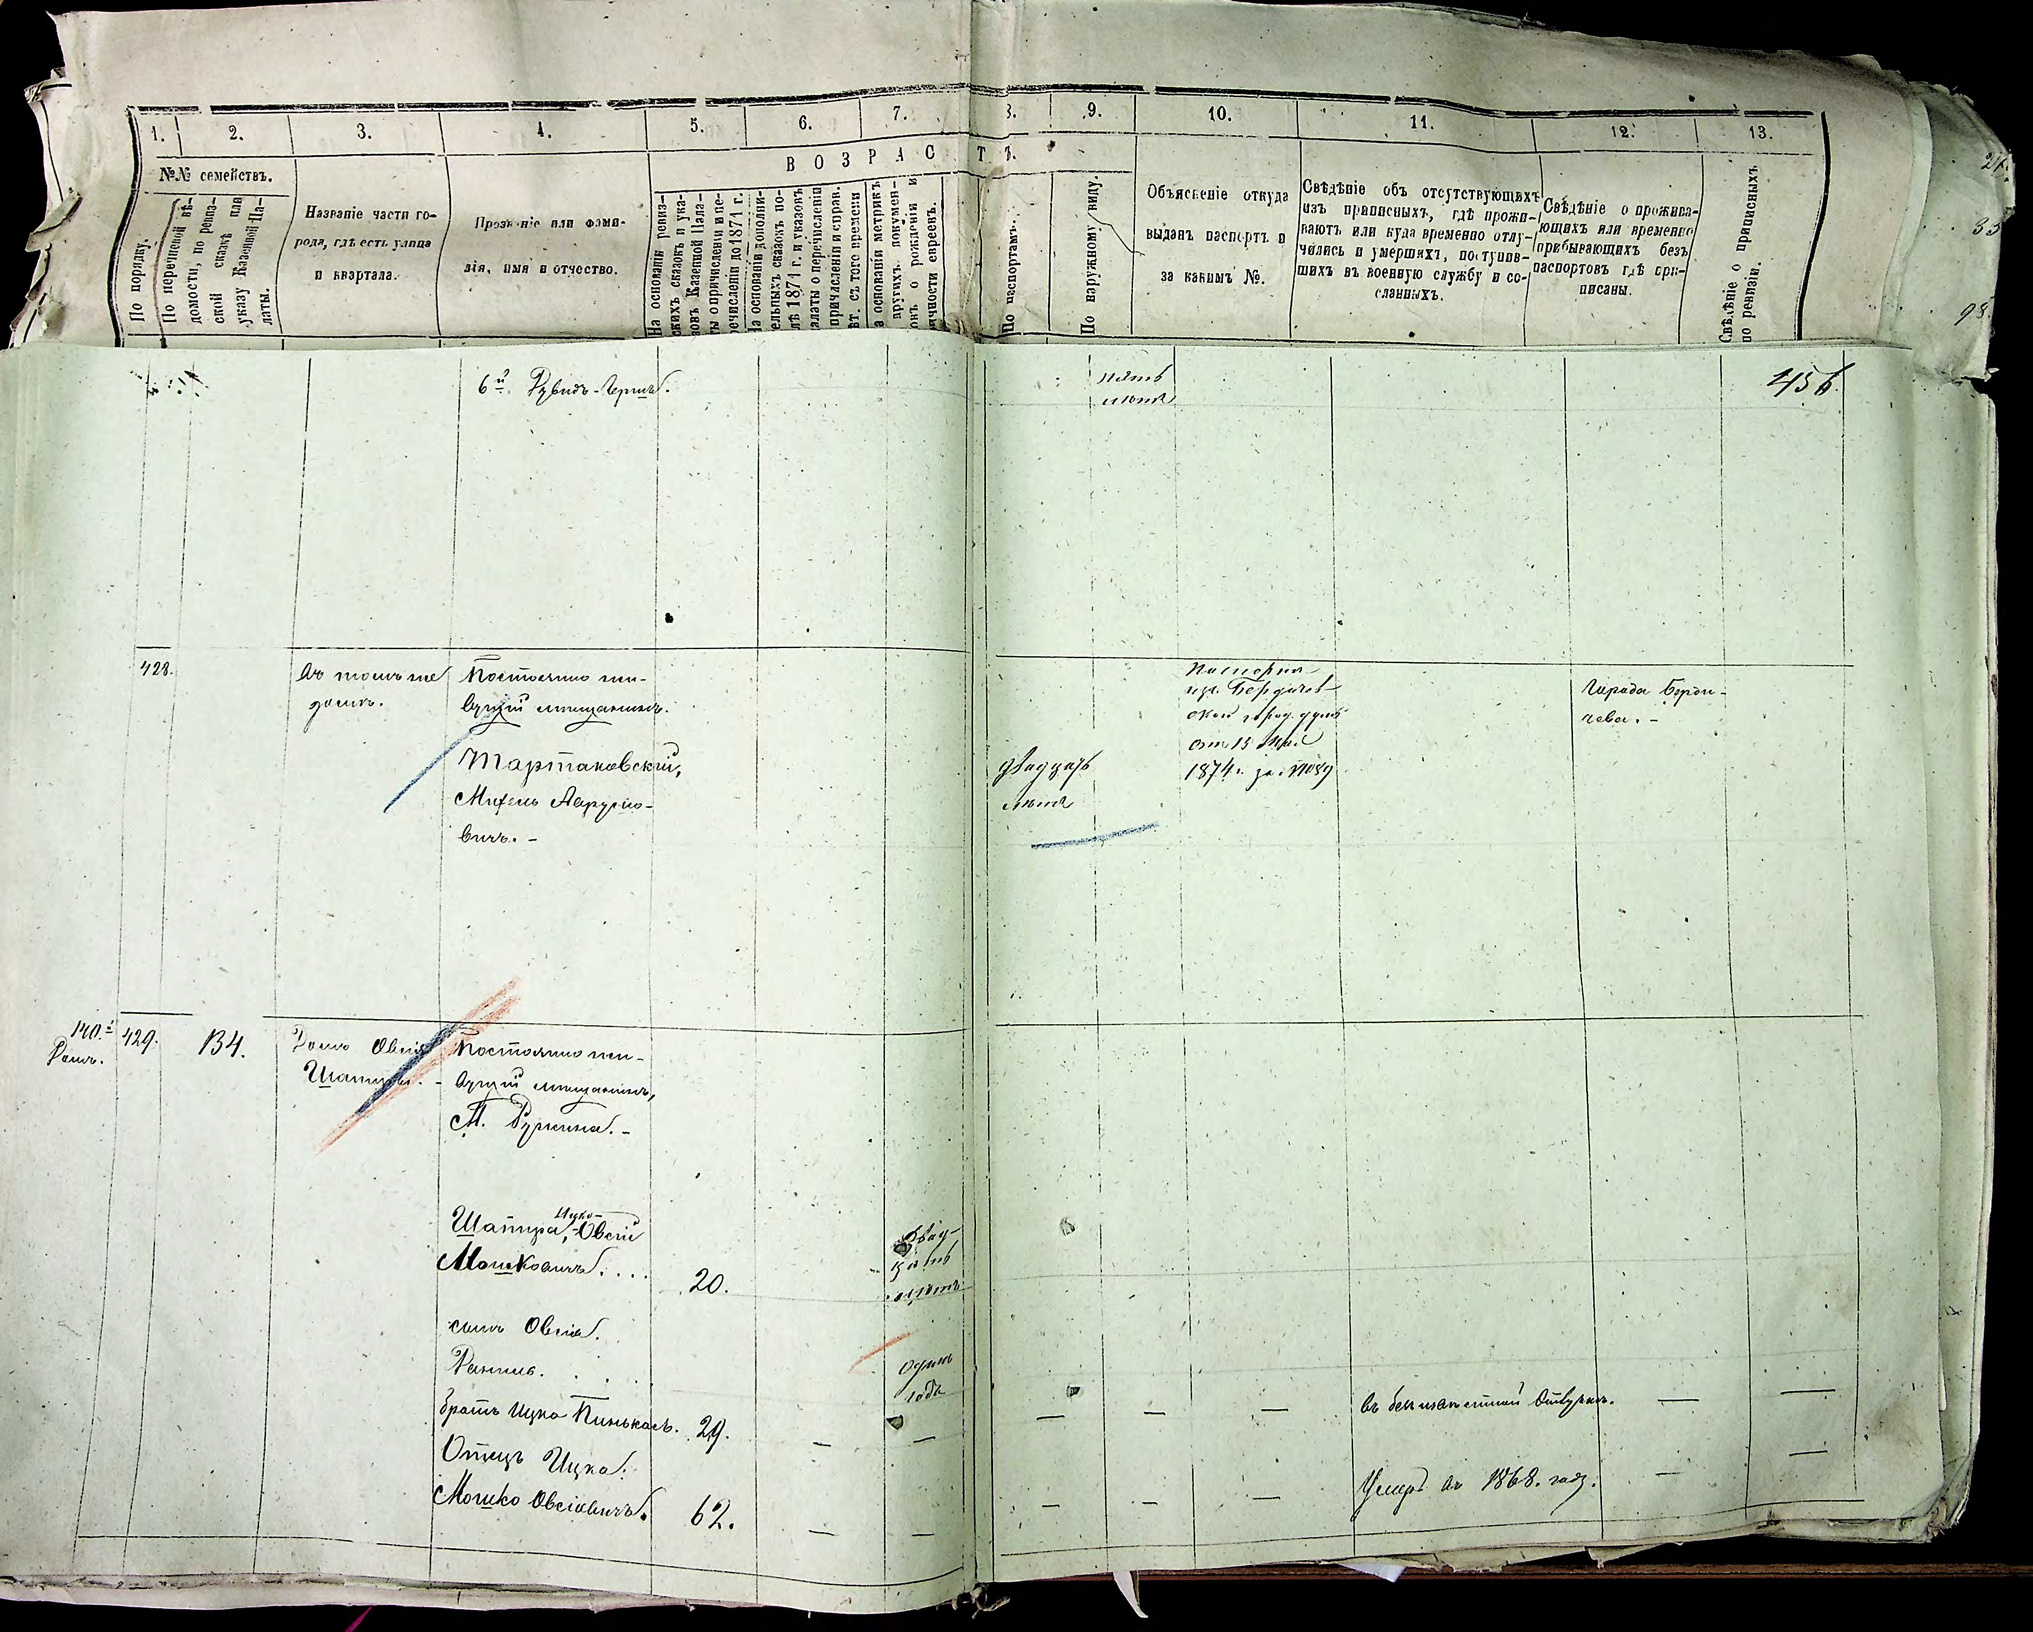 1. 2. 3. 4. 5. 6. 7. 8. 9. 10. 11. 12. 13.
В О З Р А С Т Ъ.
№№ семействъ.
По порядку.
По перечневой вѣ-
домости, по ревиз-
ской сказкѣ или
указу Казенной Па-
латы.
Названіе части го-
рода, гдѣ есть улица
и квартала.
Прозваніе или фами-
лія, имя и отчество.
На основаніи ревиз-
скихъ сказокъ и ука-
зовъ Казенной Пала-
ты о причисленіи и пе-
речисленіи до 1871 г.
На основаніи дополни-
тельныхъ сказокъ по-
слѣ 1871 г. и указовъ
палаты о перечисленіи
причисленіи и справ.
лѣт. съ того времени
На основаніи метрикъ
и другихъ докумен-
товъ о рожденіи и
личности евреевъ.
По паспортамъ.
По наружному виду.
Объясненіе откуда
выданъ паспортъ и
за какимъ №.
Свѣдѣніе объ отсутствующихъ
изъ приписныхъ, гдѣ прожи-
ваютъ или куда временно отлу-
чились и умершихъ, поступив-
шихъ въ военную службу и со-
сланныхъ.
Свѣдѣніе о прожива-
ющихъ или временно
прибывающихъ безъ
паспортовъ гдѣ при-
писаны.
Свѣдѣніе о приписныхъ
по ревизіи.
98.
456.
6й Рувидъ-Гершъ.
пять
лѣтъ
428.
въ томъ же
домѣ.
Постоянно жи-
вущій мѣщанинъ.
Тартаковскій,
Михель Аарупо-
вичъ. –
двадцать
лѣтъ
Паспортъ
изъ Бердичев-
ской город. думы
отъ 13 Мая
1874 г. за №
Города Берди-
чева. –
140й
Домъ.
429.
134.
Домъ Овсія
Шапиры. –
Постоянно жи-
вущій мѣщанинъ,
М. Ружина. –
Ицко-
Шапира, Овсій
Мошковичъ. . . .
20.
Двад-
цать
лѣтъ
сынъ Овсія.
Данило. . . .
Одинъ
годъ
братъ Ицко Пинькасъ.
29. – – – – –
въ безизвѣстной отлучкѣ. – –
Отецъ Ицка.
Мошко Овсіовичъ.
62. – – – – –
Умеръ въ 1868. году. – –